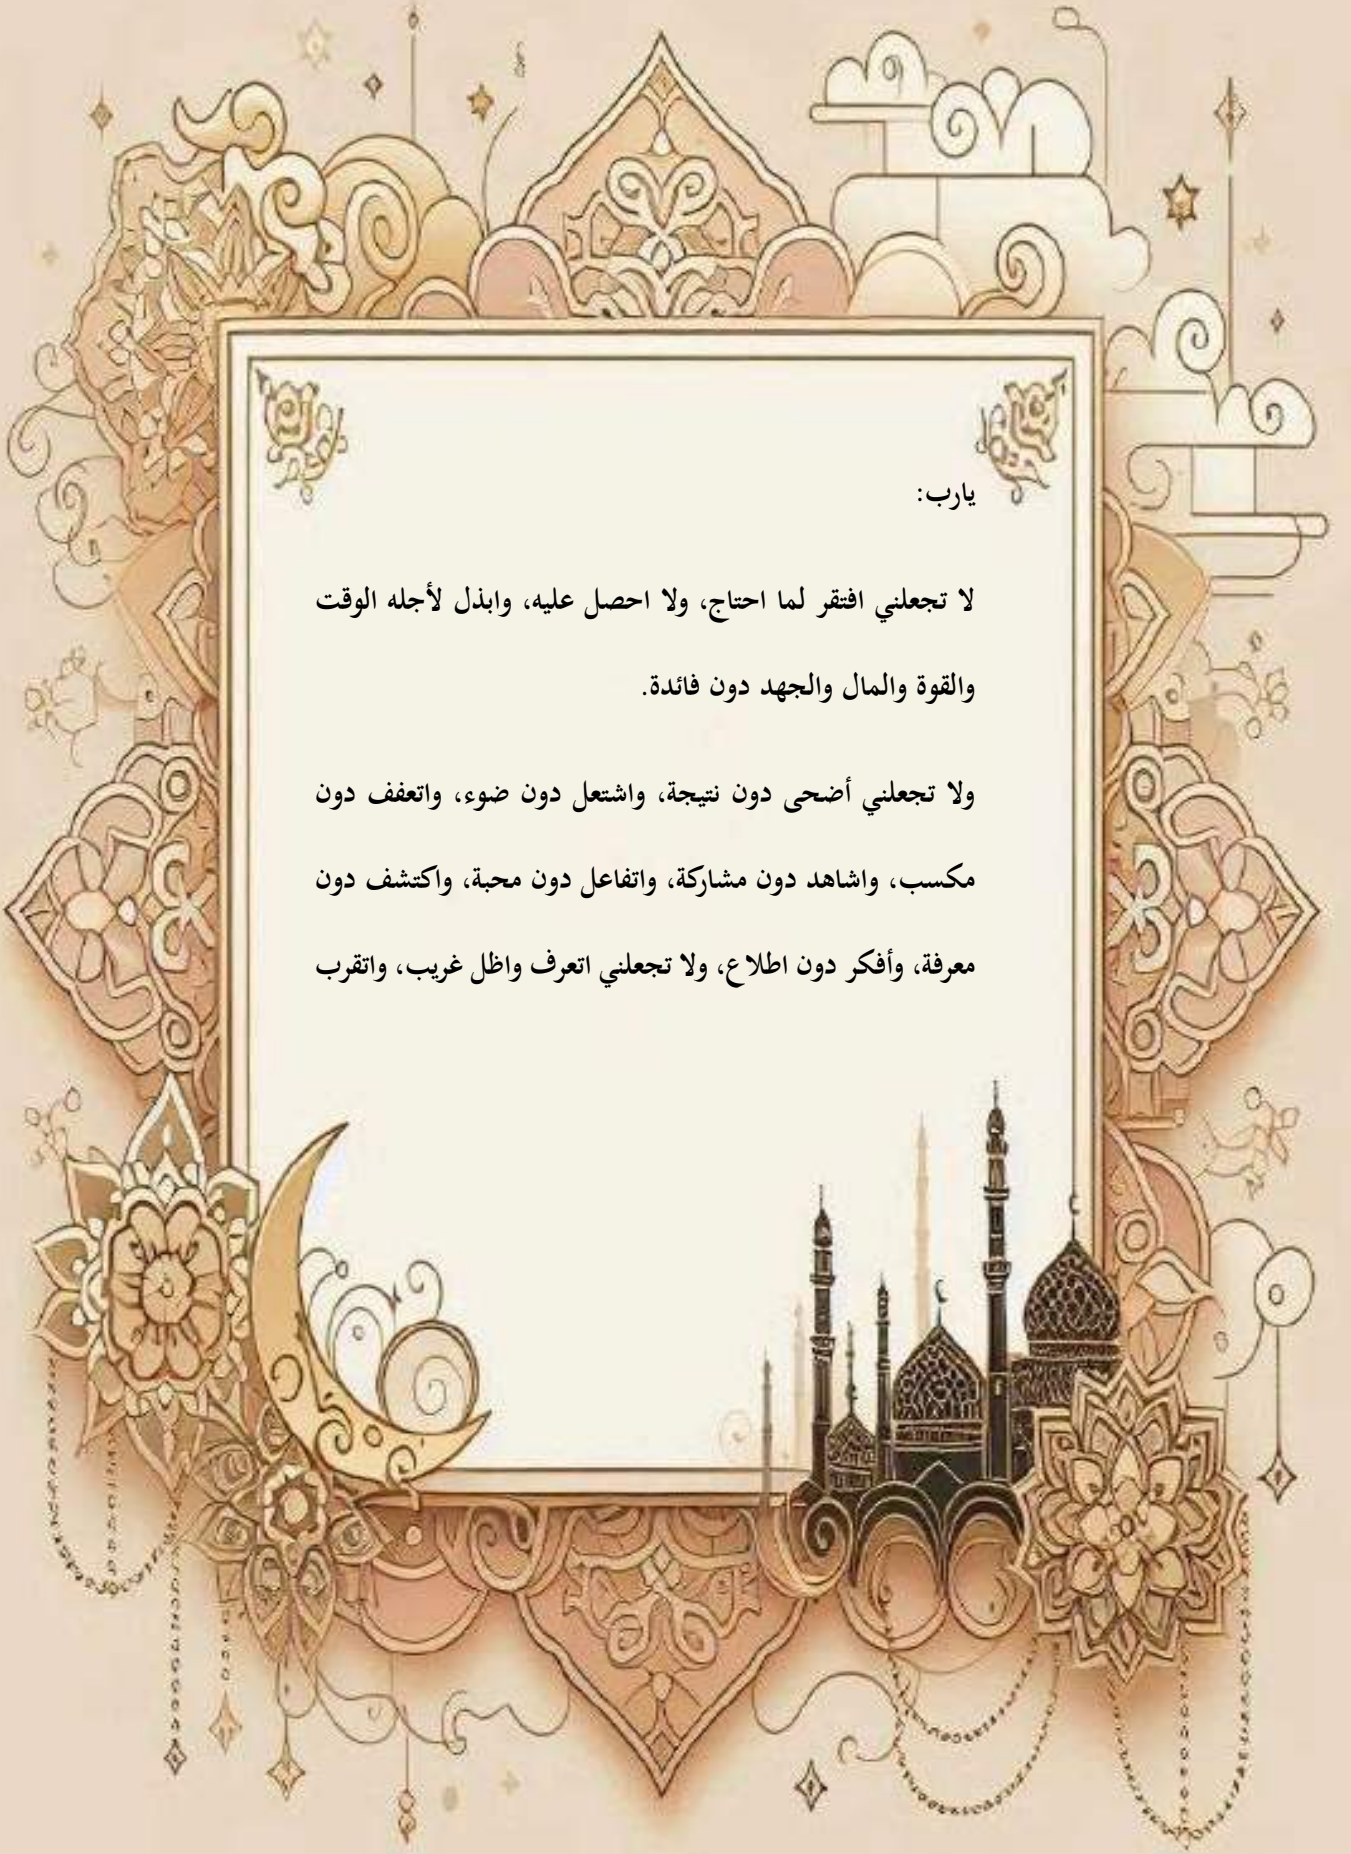 يارب:
لا تجعلني افتقر لما احتاج، ولا احصل عليه، وابذل لأجله الوقت
والقوة والمال والجهد دون فائدة.
ولا تجعلني أضحى دون نتيجة، واشتعل دون ضوء، واتعفف دون
مكسب، واشاهد دون مشاركة، واتفاعل دون محبة، واكتشف دون
معرفة، وأفكر دون اطلاع، ولا تجعلني اتعرف واظل غريب، واتقرب